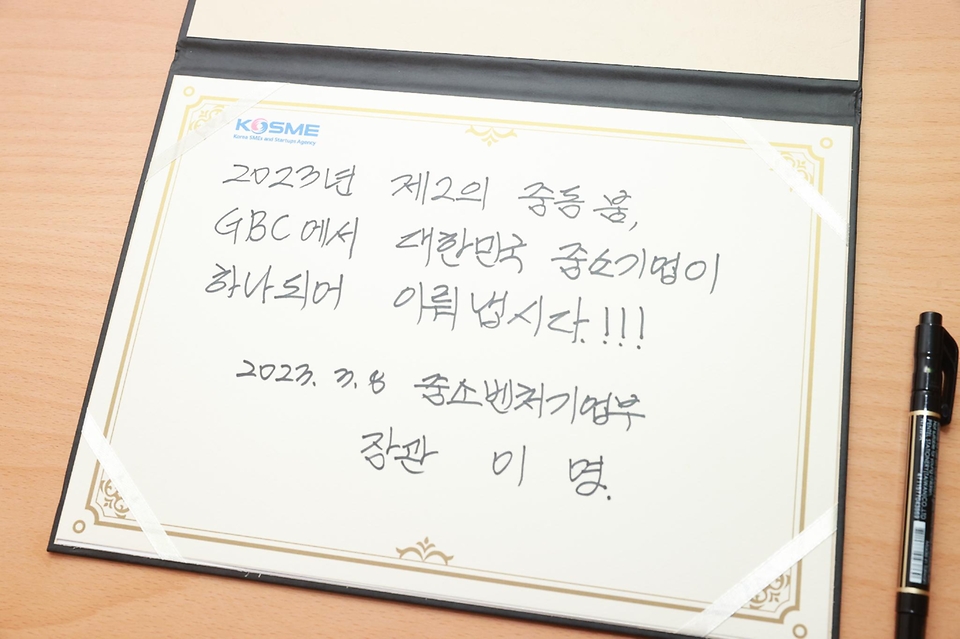 KOSME
Korea SMEs and Startups Agency
2023년 제2의 중동 붐,
GBC에서 대한민국 중소기업이
하나되어 이뤄 냅시다.!!!
2023. 3. 8 중소벤처기업부
장관 이 영.